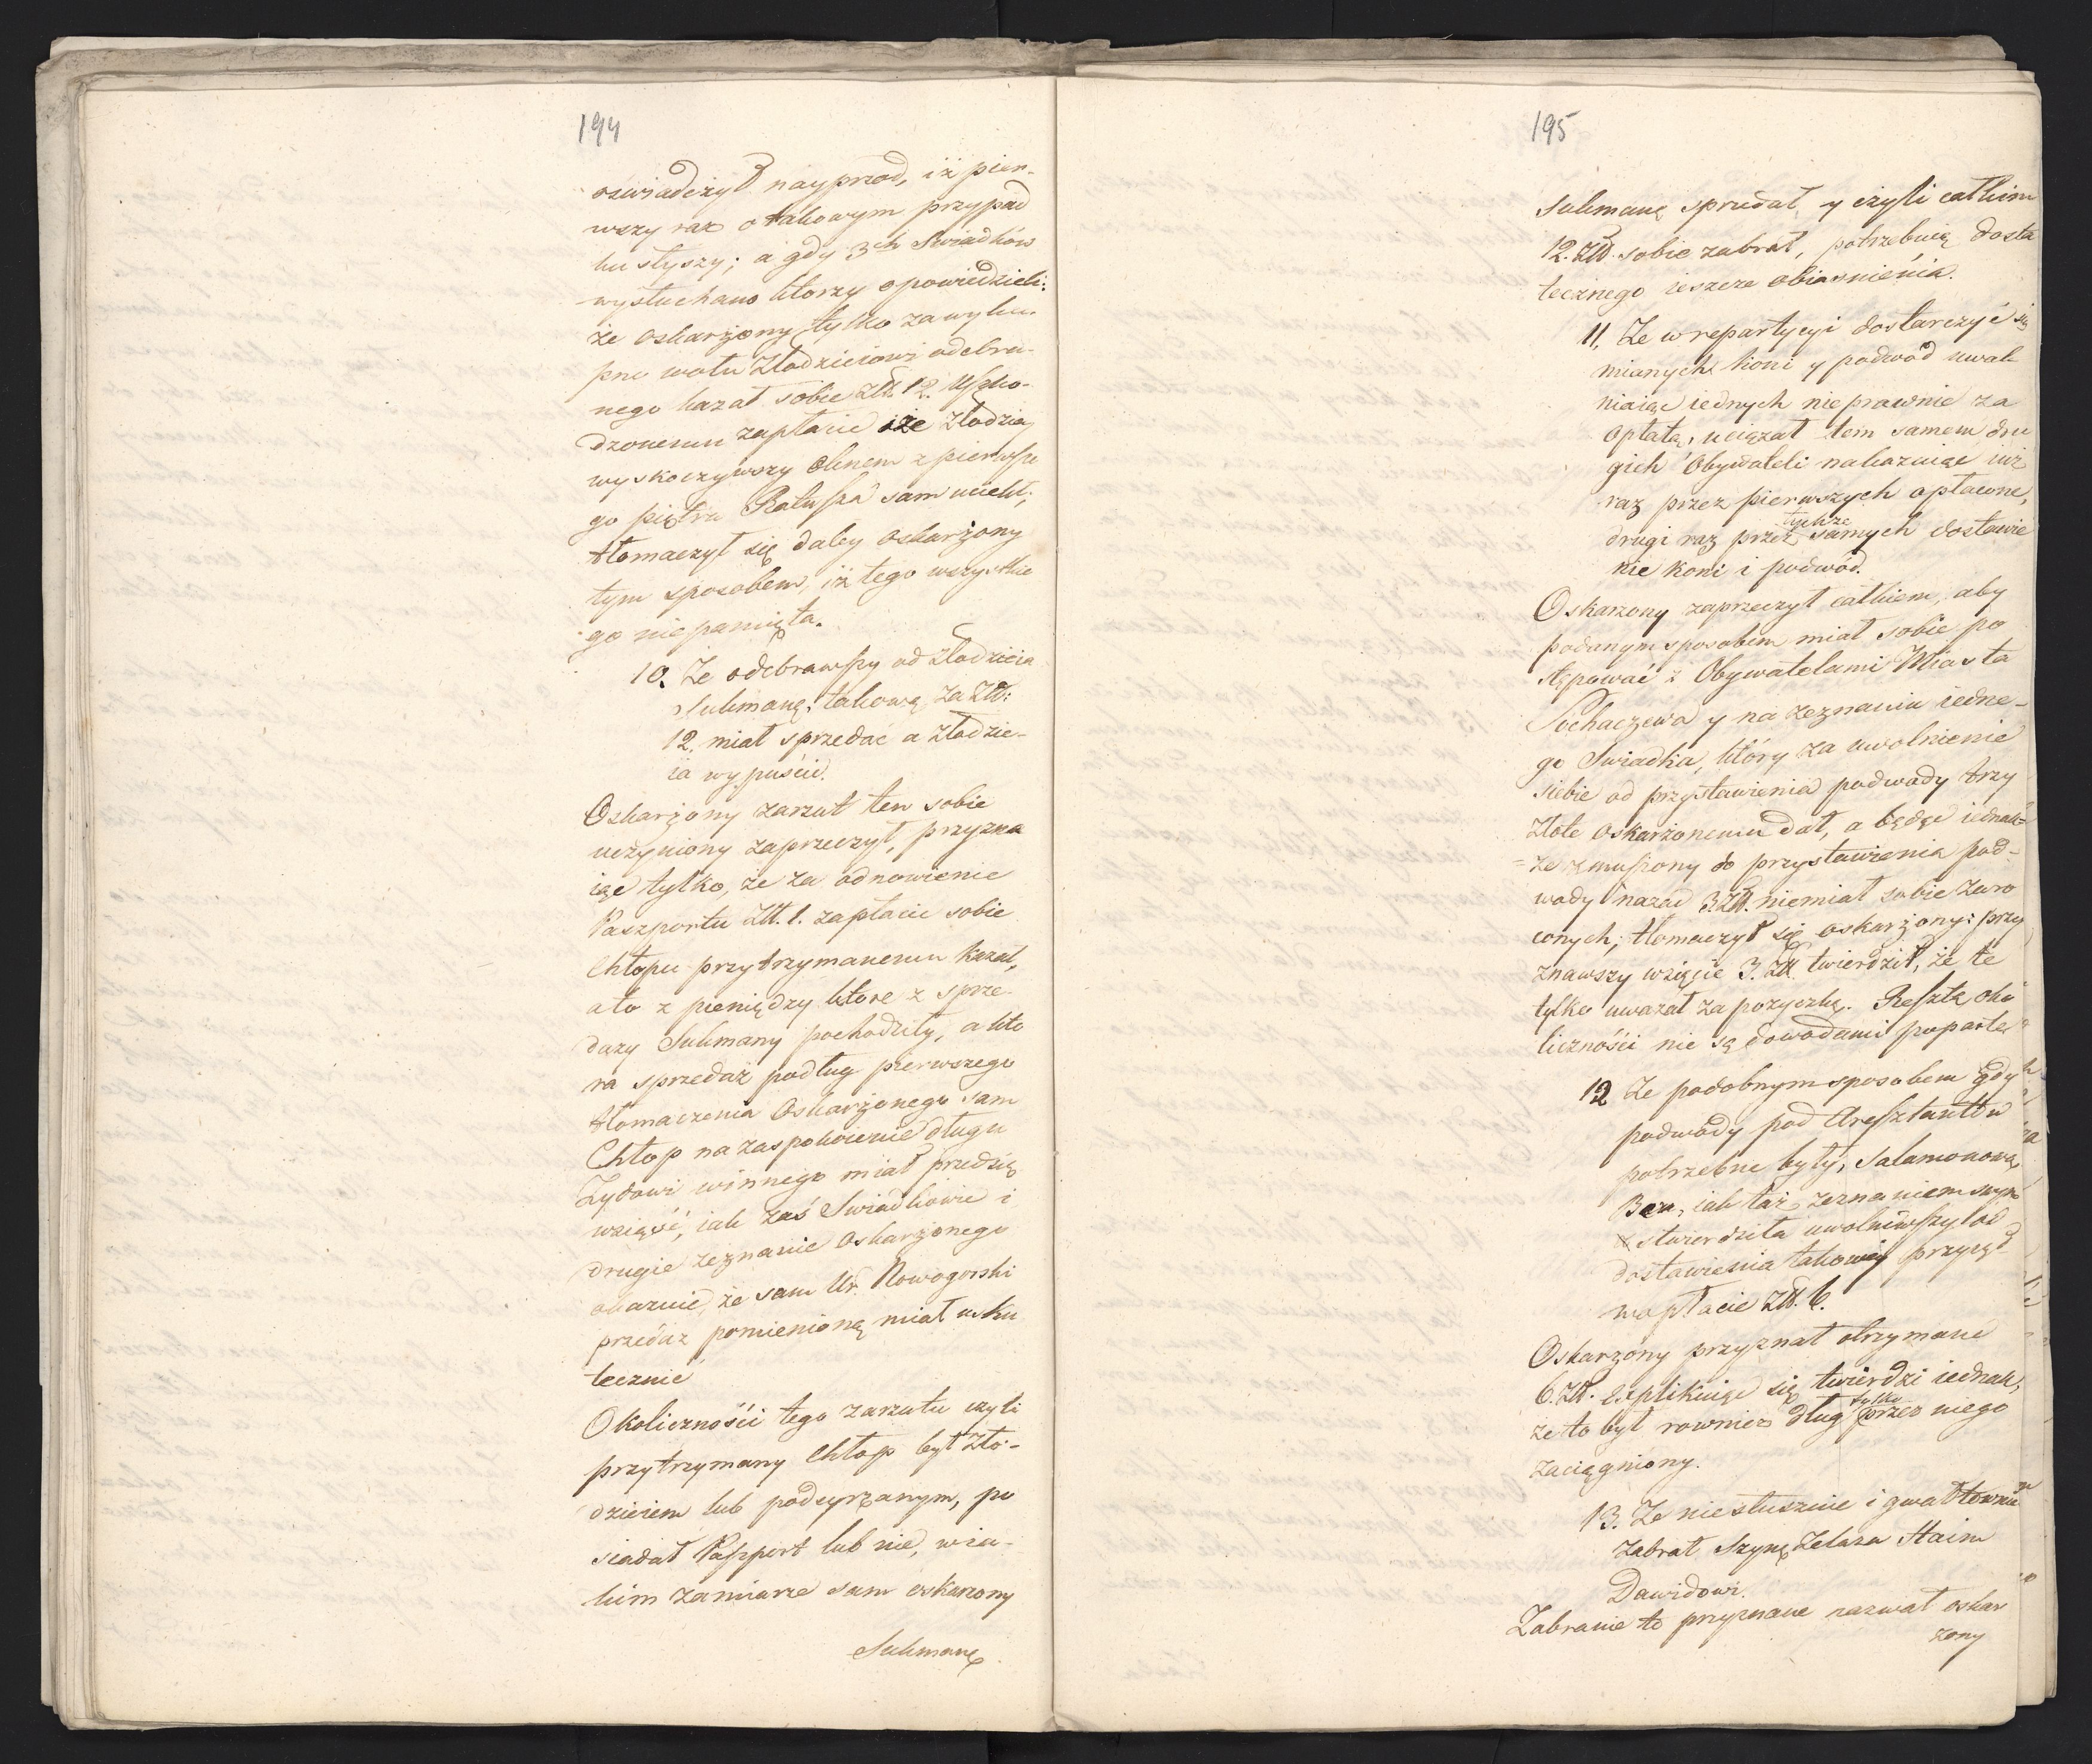 194
oswiadczył nayprzod, iż pier-
wszy raz o takowym przypad
ku słyszy; a gdy 3ch Swiadków
wysłuchano którzy opowiedzieli:
że oskarżony tylko za wyku-
pne wołu Złodzieiowi odebra-
nego kazał sobie Złł. 12. Uszko-
dzonemu zapłacić iże Złodziey
wyskoczywszy oknem z pierwsze
go piętra Ratusza sam uciekł;
tłomaczył się daley oskarżony
tym sposobem, iż tego wszystkie
go niepamięta.
10. Że odebrawszy od złodzieia
Sukmanę, takową za Złł:
12. miał sprzedać a złodzie-
ia wypuścić.
Oskarżony zarzut ten sobie
uczyniony zaprzeczył, przyzna
iąc tylko, że za odnowienie
Paszportu Złł. 1. zapłacić sobie
Chłopu przytrzymanemu kazał,
a to z pieniędzy które z sprze
daży Sukmany pochodziły, a któ
ra sprzedaż podług pierwszego
tłomaczenia Oskarżonego sam
Chłop na zaspokoienie długu
Żydowi winnego miał przedsię
wziąść, iak zaś Swiadkowie i
drugie zeznanie Oskarżonego
okazuie, że sam Ur. Nowogorski
przedaż pomienioną miał usku
tecznić
Okoliczności tego zarzutu czyli
przytrzymany Chłop był zło-
dzieiem lub podeyrzanym, po
siadał Paszport lub nie, w ia-
kim zamiarze sam oskarżony
Sukmanę
195
Sukmanę sprzedał, y czyli całkiem
12. Złł. sobie zabrał, potrzebuią dosta
tecznego ieszcze obiasnienia.
11. Że w repartycyi dostarczyć się
mianych koni y podwód uwal
niaiąc iednych nieprawnie za
opłatą, uciążał tem samem dru
gich Obywateli nakazuiąc iuż
raz przez pierwszych opłacone,
tychże
drugi raz przez samych dostawie
nie koni i podwód.
Oskarzony zaprzeczył całkiem, aby
podanym sposobem miał sobie po
stępować z Obywatelami Miasta
Sochaczewa y na zeznaniu iedne-
go Swiadka, który za uwolnienie
siebie od przystawienia podwody trzy
złote oskarżonemu dał, a będąc iednak=
=że zmuszony do przystawienia pod-
wody nazad 3. Złł. niemiał sobie zwró
conych; tłomaczył się oskarżony: przy
znawszy wzięcie 3. Złł. twierdził, że te
tylko uważał za pożyczkę. Resztę oko
liczności nie są dowodami poparte
12 Że podobnym sposobem gdy
podwody pod Aresztantów
potrzebne były, Salamonową
Ber, iak taż zeznaniem swym
stwierdziła uwolniwszy od
dostawienia takowey przyiął
w opłacie Złł. 6.
Oskarzony przyznał otrzymane
6. Złł. explikuiąc się twierdzi iednak,
tylko
że to był rownież dług przez niego
zaciągniony.
13. Że niesłusznie i gwałtownie
zabrał Szynę Żelaza Haim
Dawidowi.
Zabranie to przyznane nazwał oskar
żony